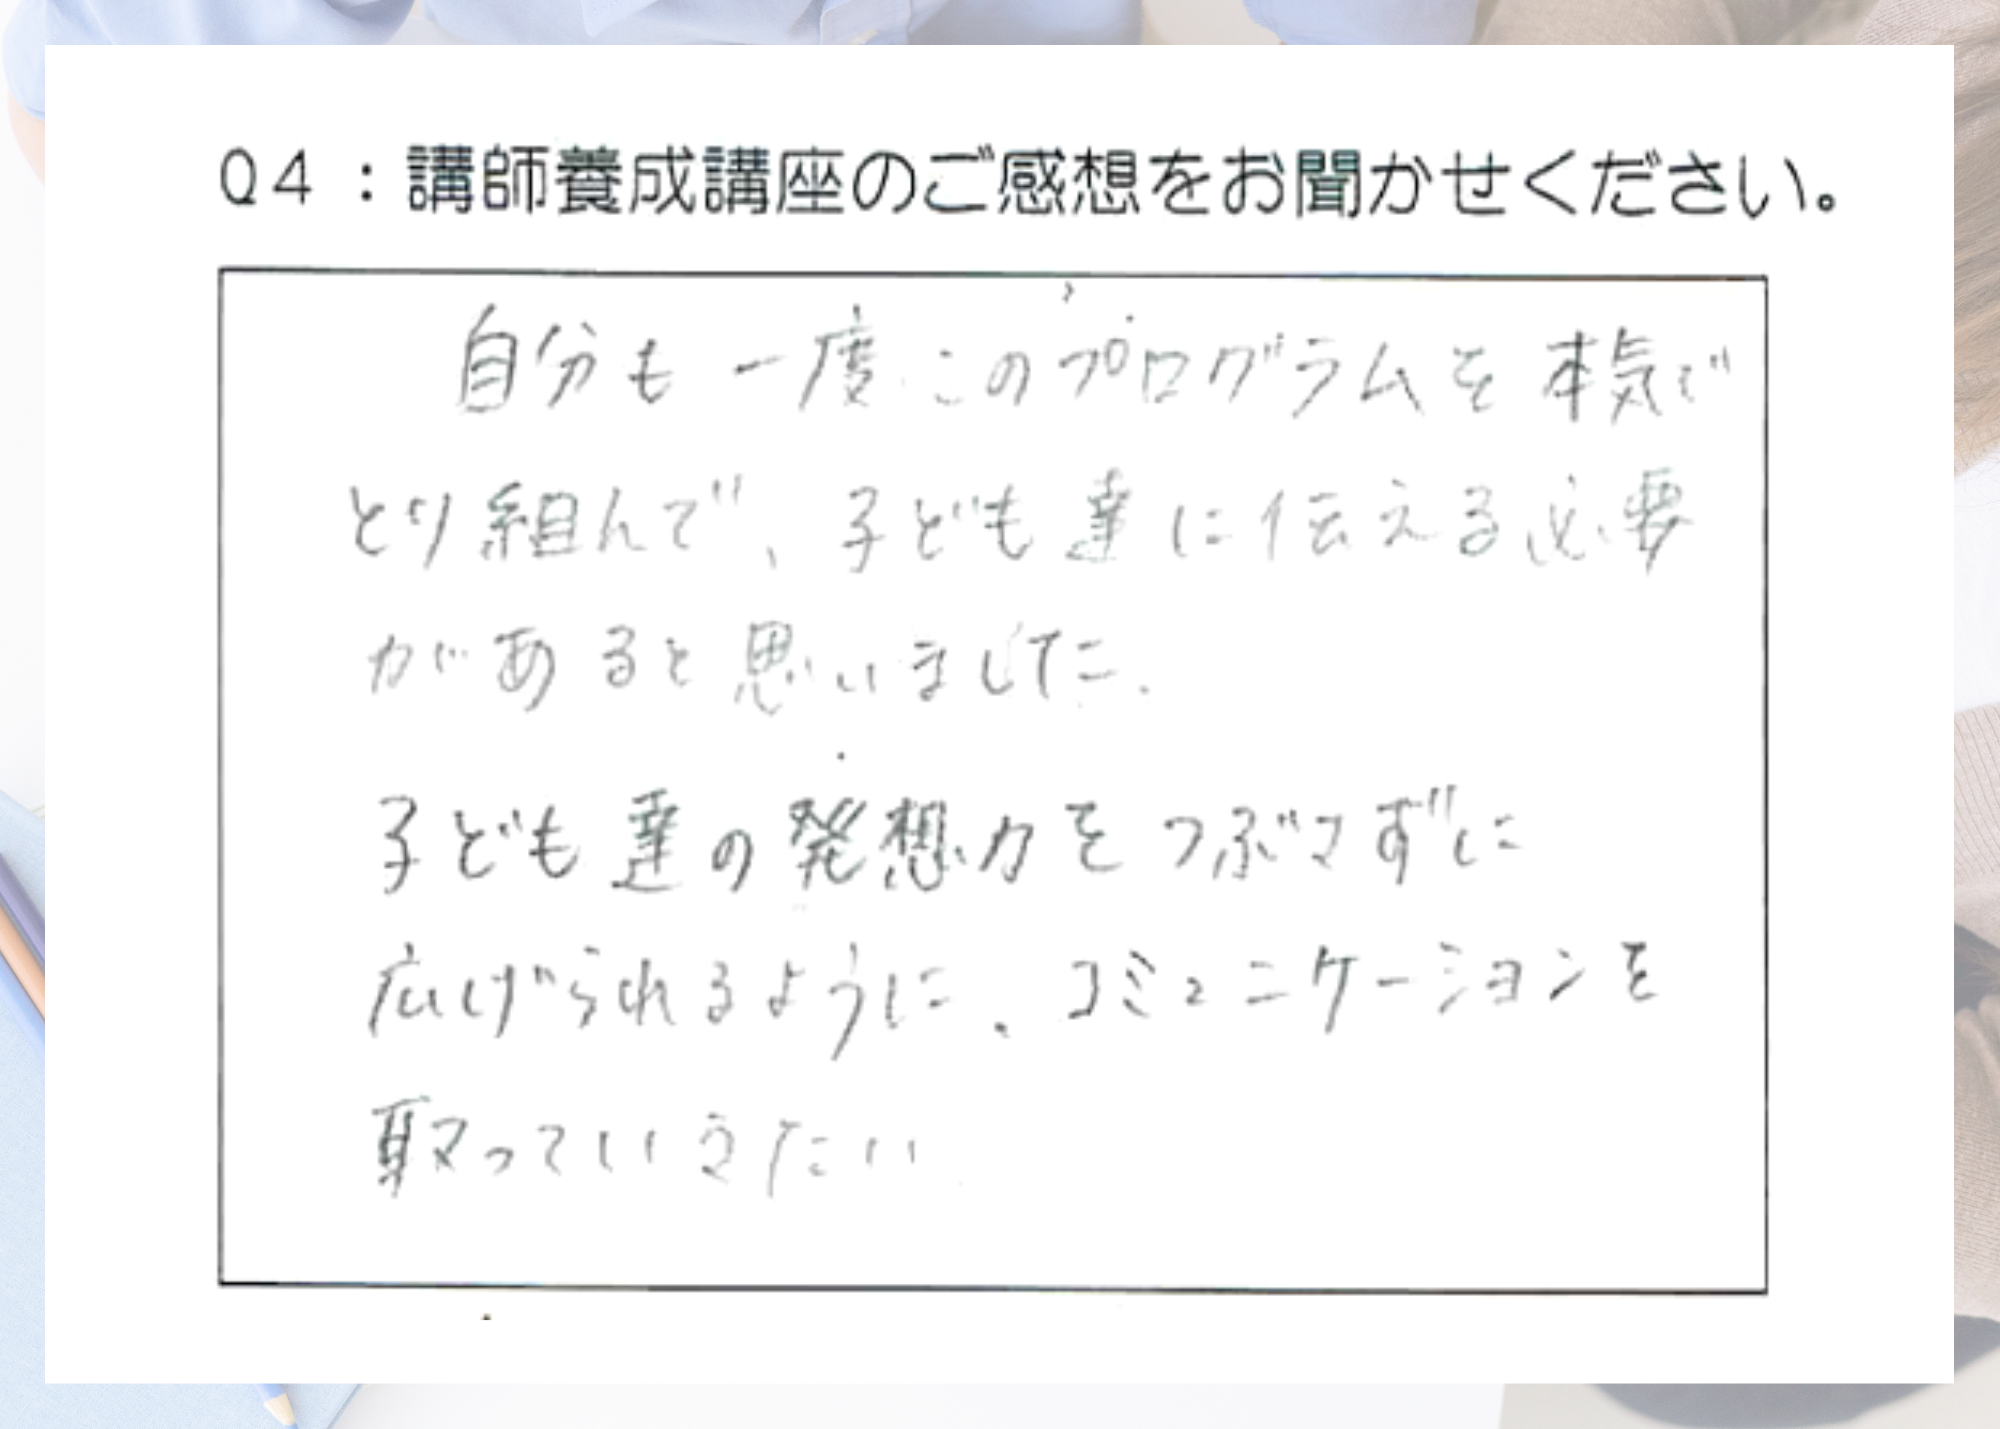 Q4：講師養成講座のご感想をお聞かせください。
自分も一度このプログラムを本気で
とり組んで、子ども達に伝える必要
があると思いました.
子ども達の発想力をつぶさずに
広げられるように、コミュニケーションを
取っていきたい